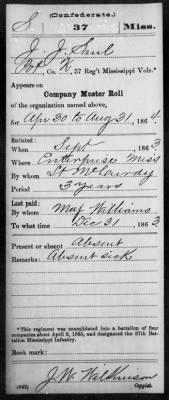 (Confederate.)
S 37 Miss.
J. J. Saul
Pvt, Co. K, 37 Reg't Mississippi Vols.*
Appears on
Company Muster Roll
of the organization named above,
for Apr 30 to Aug 31, 1864
Enlisted:
When Sept, 1863
Where Enterprise Miss
By whom Lt McCurdy
Period 3 years
Last paid:
By whom Maj Williams
To what time Dec 31, 1863.
Present or absent Absent
Remarks: Absent sick
*This regiment was consolidated into a battalion of four
companies about April 9, 1865, and designated the 37th Bat-
talion Mississippi Infantry.
Book mark:
(642) J. W. Wilkinson
Copyist.